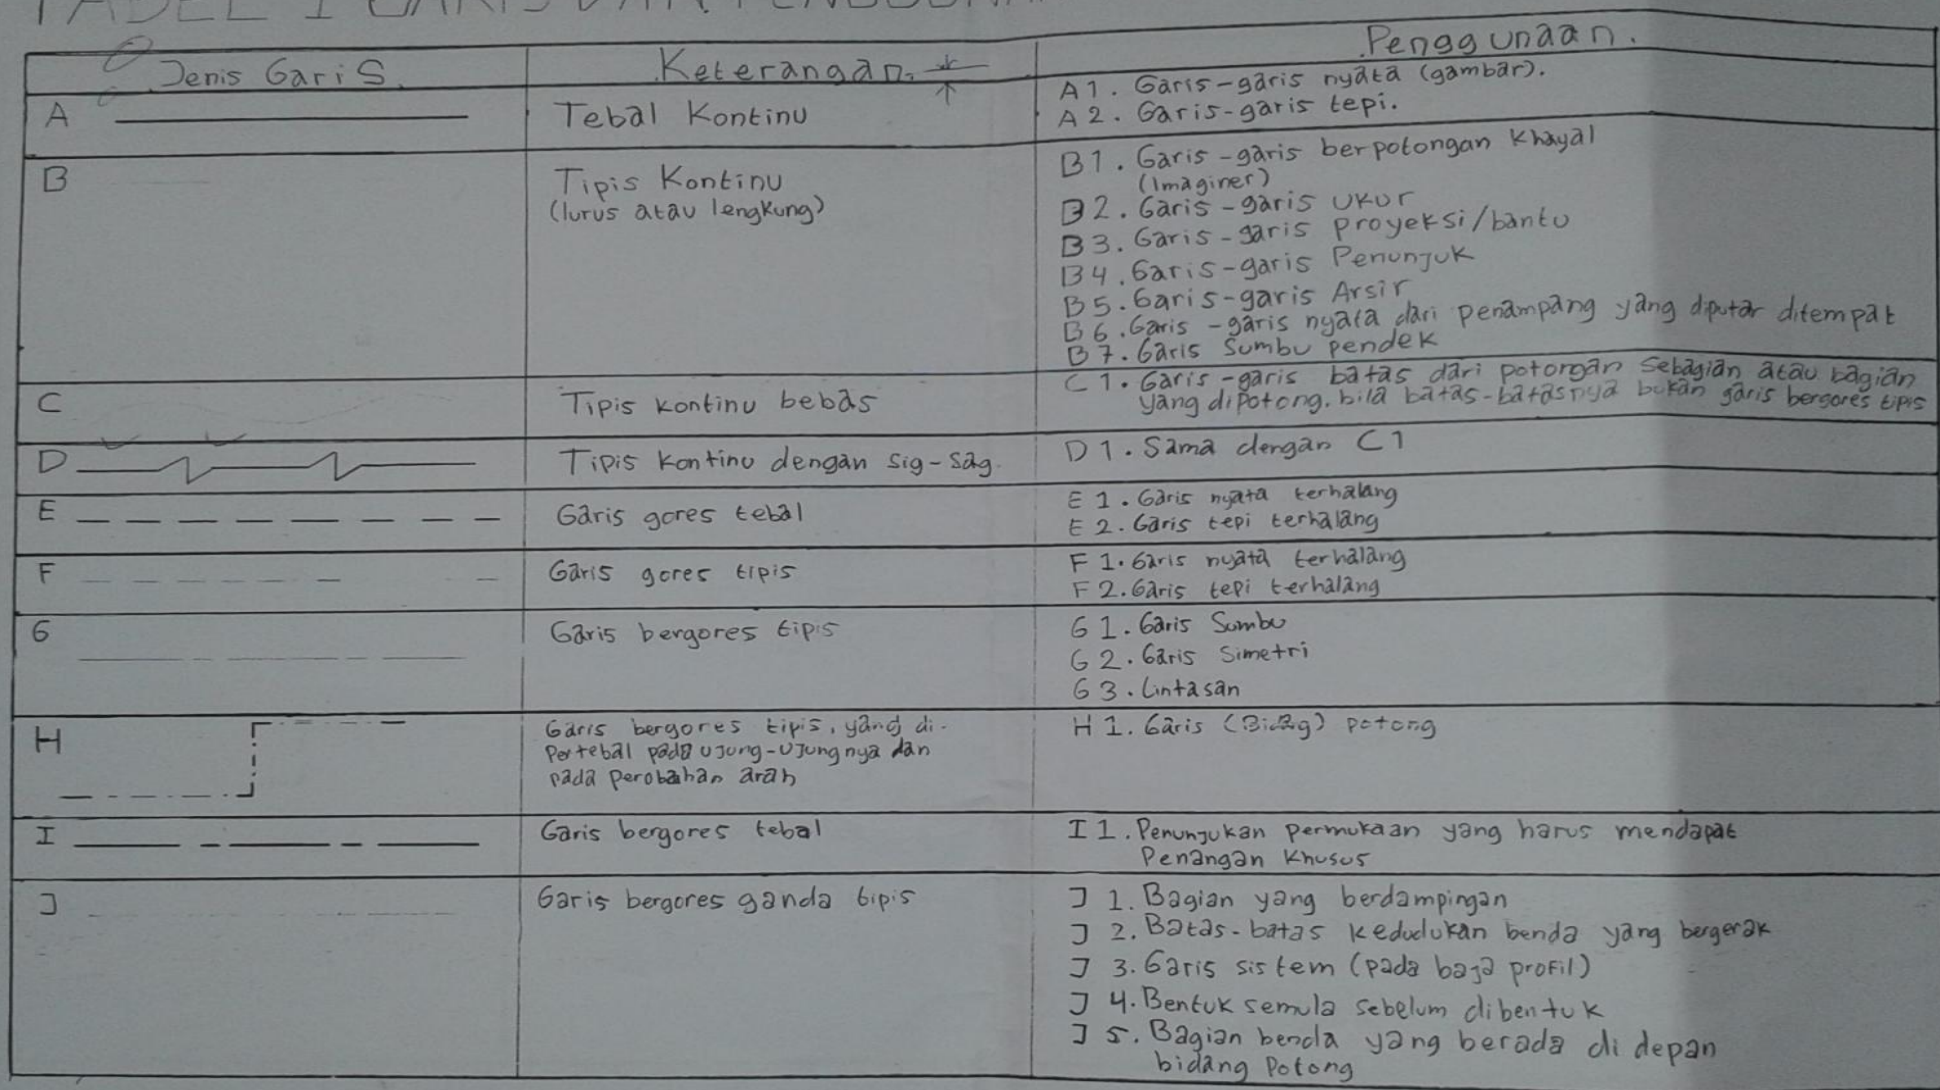 TABEL 1 GARIS DAN PENGGUNA
Jenis Garis. Keterangan. Penggunaan.
A Tebal Kontinu A1. Garis-garis nyata (gambar).
A2. Garis-garis tepi.
B Tipis Kontinu B1. Garis-garis berpotongan Khayal
(lurus atau lengkung) (Imaginer)
B2. Garis-garis Ukur
B3. Garis-garis Proyeksi/bantu
B4. Garis-garis Penunjuk
B5. Garis-garis Arsir
B6. Garis-garis nyata dari penampang yang diputar ditempat
B7. Garis Sumbu pendek
C Tipis kontinu bebas C1. Garis-garis batas dari potongan Sebagian atau bagian
yang dipotong. bila batas-batasnya bukan garis bergores tipis
D Tipis Kontinu dengan sig-sag. D1. Sama dengan C1
E Garis gores tebal E1. Garis nyata terhalang
E2. Garis tepi terhalang
F Garis gores tipis F1. Garis nyata terhalang
F2. Garis tepi terhalang
G Garis bergores tipis G1. Garis Sumbu
G2. Garis Simetri
G3. Lintasan
H Garis bergores tipis, yang di- H1. Garis (Bidag) potong
Pertebal pada ujung-ujungnya dan
pada perobahan arah
I Garis bergores tebal I1. Penunjukan permukaan yang harus mendapat
Penangan Khusus
J Garis bergores ganda tipis J 1. Bagian yang berdampingan
J 2. Batas-batas kedudukan benda yang bergerak
J 3. Garis sistem (pada baja profil)
J 4. Bentuk semula sebelum dibentuk
J 5. Bagian benda yang berada di depan
bidang Potong